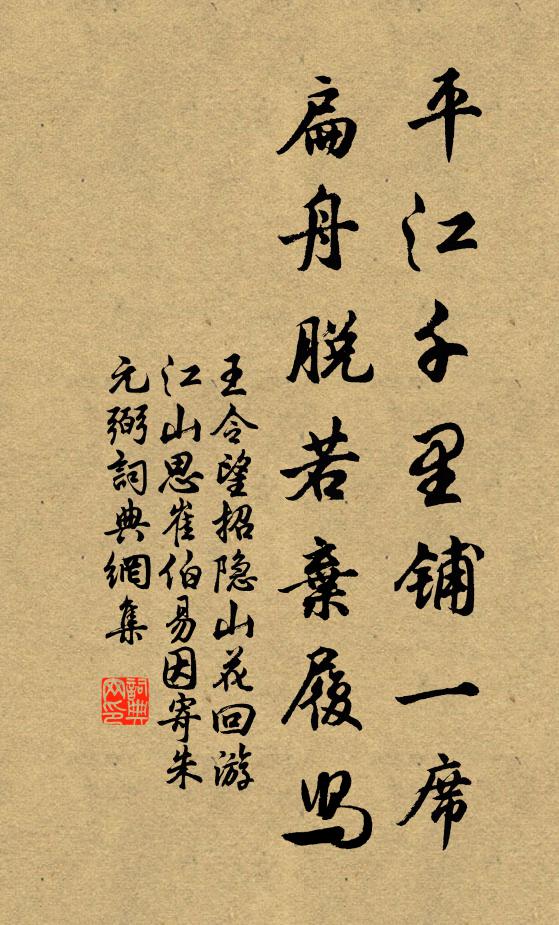 平江千里铺一席
扁舟脱若棄履舄
王令望招隐山花回游
江山思崔伯易因寄朱
元弼詞典網集
詞典
网印